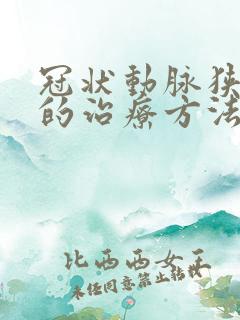 冠状動脉狭
的治療方法
比西西女王
未任同意禁止转载